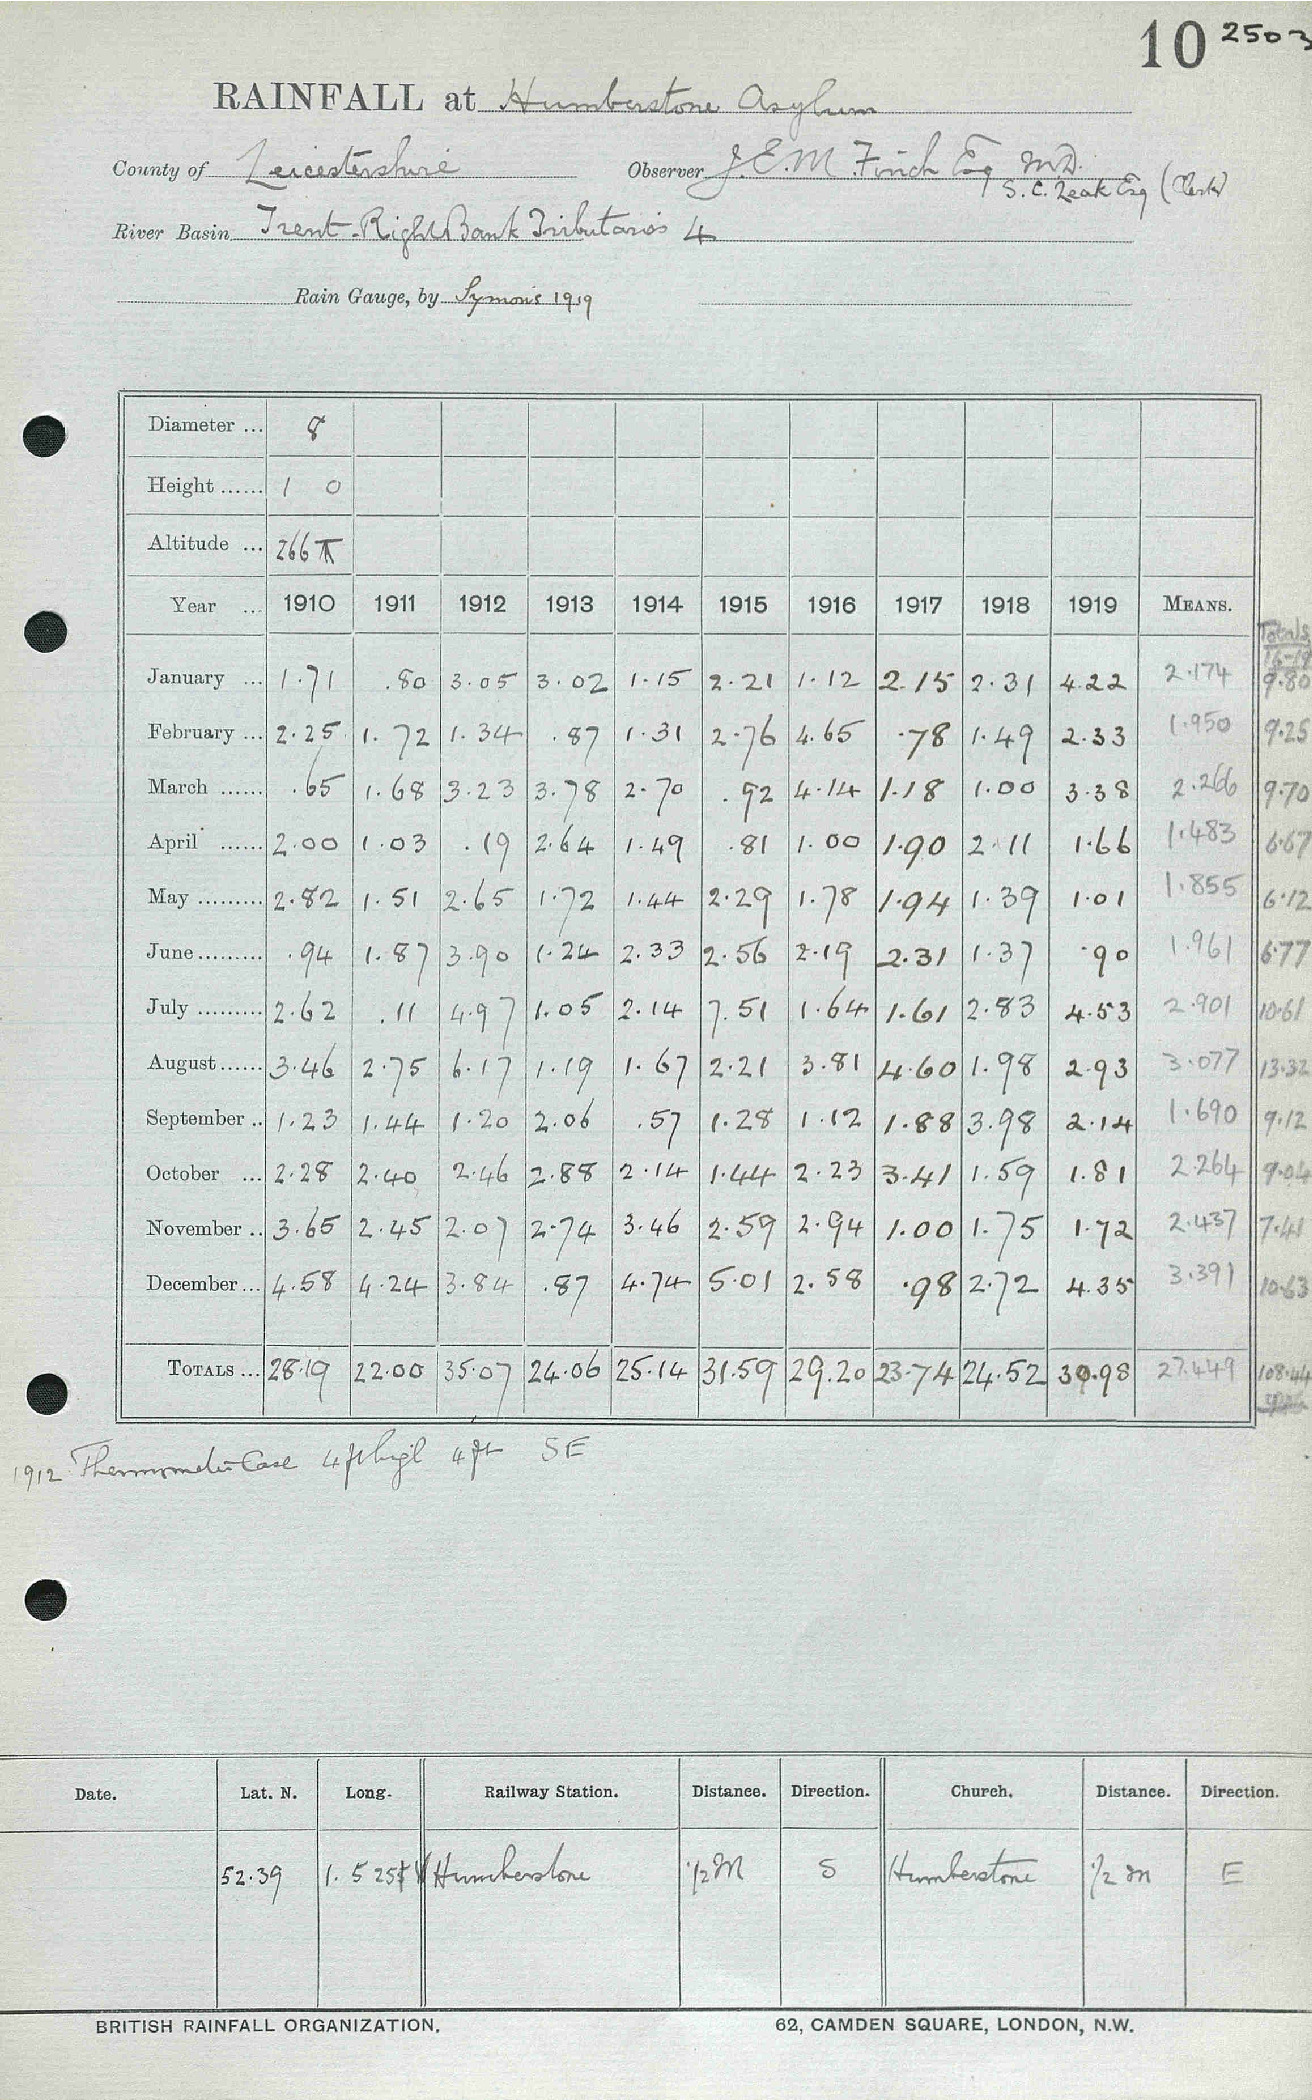 10 2503
RAINFALL at Humberstone Asylum
County of Leicestershire Observer J. E. M. Finch Esq M.D.
S. C. Leak Esq (Clerk)
River Basin Trent-Right Bank Tributaries 4
Rain Gauge, by Symons 1919
Diameter ... 8
Height ...... 1 0
Altitude ... 266
Year ... 1910 1911 1912 1913 1914 1915 1916 1917 1918 1919 MEANS. Totals 16-19
January ... 1.71 .80 3.05 3.02 1.15 2.21 1.12 2.15 2.31 4.22 2.174 9.80
February ... 2.25 1.72 1.34 .87 1.31 2.76 4.65 .78 1.49 2.33 1.950 9.25
March ...... .65 1.68 3.23 3.78 2.70 .92 4.14 1.18 1.00 3.38 2.266 9.70
April ...... 2.00 1.03 .19 2.64 1.49 .81 1.00 1.90 2.11 1.66 1.483 6.67
May ......... 2.82 1.51 2.65 1.72 1.44 2.29 1.78 1.94 1.39 1.01 1.855 6.12
June ......... .94 1.87 3.90 1.24 2.33 2.56 2.19 2.31 1.37 .90 1.961 6.77
July ......... 2.62 .11 4.97 1.05 2.14 7.51 1.64 1.61 2.83 4.53 2.901 10.61
August ...... 3.46 2.75 6.17 1.19 1.67 2.21 3.81 4.60 1.98 2.93 3.077 13.32
September .. 1.23 1.44 1.20 2.06 .57 1.28 1.12 1.88 3.98 2.14 1.690 9.12
October ... 2.28 2.40 2.46 2.88 2.14 1.44 2.23 3.41 1.59 1.81 2.264 9.04
November .. 3.65 2.45 2.07 2.74 3.46 2.59 2.94 1.00 1.75 1.72 2.437 7.41
December ... 4.58 4.24 3.84 .87 4.74 5.01 2.58 .98 2.72 4.35 3.391 10.63
TOTALS ... 28.19 22.00 35.07 24.06 25.14 31.59 29.20 23.74 24.52 30.98 27.449 108.44
1912 Thermometer Case 4 ft high 4 ft SE
Date. Lat. N. Long. Railway Station. Distance. Direction. Church. Distance. Direction.
52.39 1. 5 25 W Humberstone 1/2 M S Humberstone 1/2 m E
BRITISH RAINFALL ORGANIZATION. 62, CAMDEN SQUARE, LONDON, N.W.